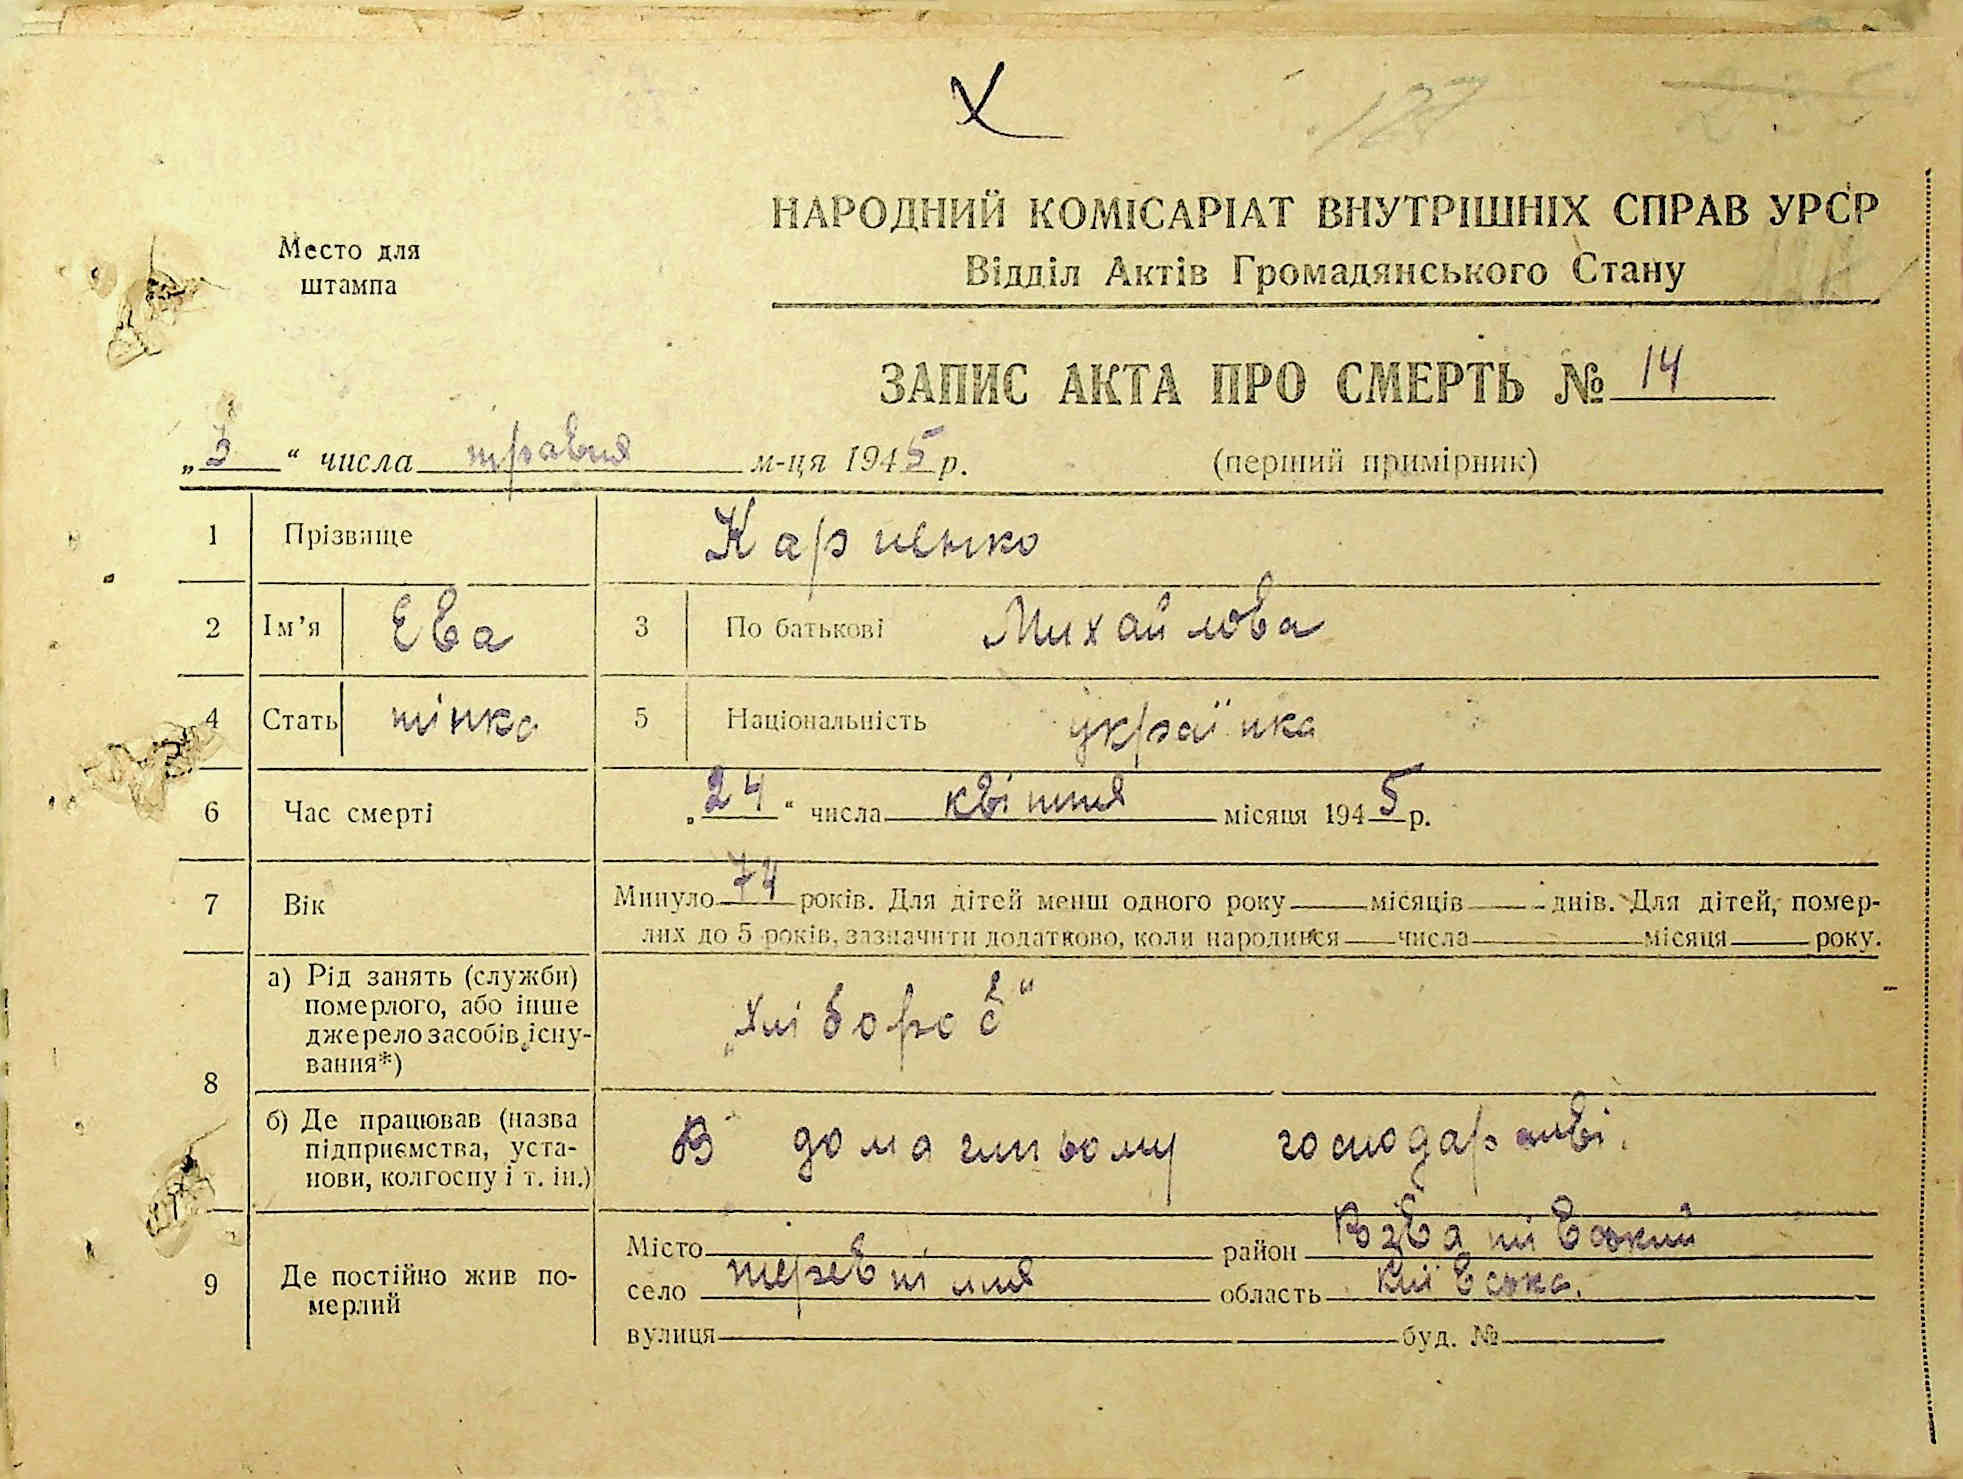 X
127
Место для
штампа
НАРОДНИЙ КОМІСАРІАТ ВНУТРІШНІХ СПРАВ УРСР
Відділ Актів Громадянського Стану
ЗАПИС АКТА ПРО СМЕРТЬ № 14
„3“ числа травня м-ця 1945 р. (перший примірник)
1 Прізвище Карпенко
2 Ім’я Ева 3 По батькові Михайлова
4 Стать жінка 5 Національність українка
6 Час смерті „24“ числа квітня місяця 1945 р.
7 Вік Минуло 74 років. Для дітей менш одного року місяців днів. Для дітей, помер-
лих до 5 років, зазначити додатково, коли народився числа місяця року.
8 а) Рід занять (служби)
померлого, або інше
джерело засобів існу-
вання*)
„Хлібороб“
б) Де працював (назва
підприємства, уста-
нови, колгоспу і т. ін.)
В домашньому господарстві.
9 Де постійно жив по-
мерлий
Місто район
село область Київська.
вулиця буд. №